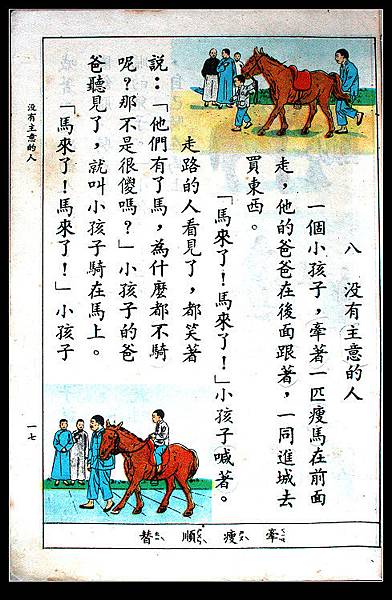 八　沒有主意的人
一個小孩子，牽著一匹瘦馬在前面
走，他的爸爸在後面跟著，一同進城去
買東西。
「馬來了！馬來了！」小孩子喊著。
走路的人看見了，都笑著
說：「他們有了馬，為什麼都不騎
呢？那不是很傻嗎？」小孩子的爸
爸聽見了，就叫小孩子騎在馬上。
「馬來了！馬來了！」小孩子
沒有主意的人
一七
牽 瘦 順 替